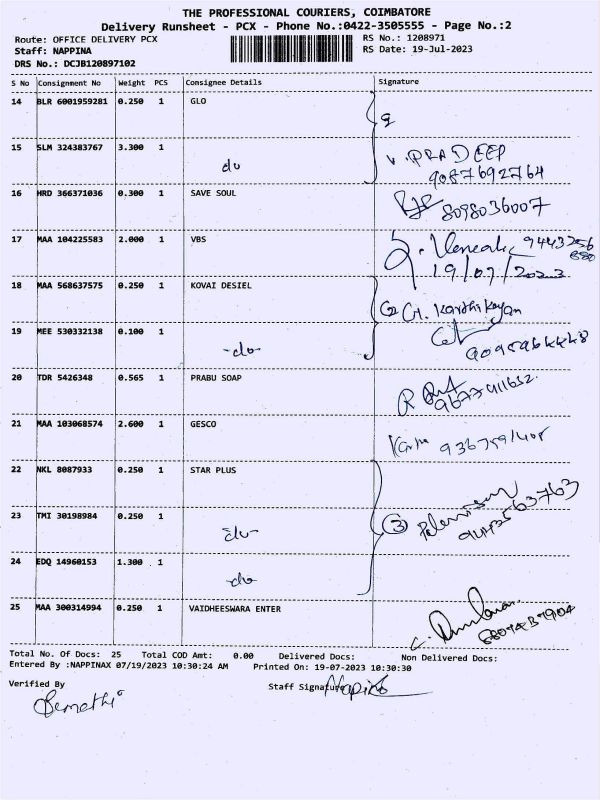 THE PROFESSIONAL COURIERS, COIMBATORE
Delivery Runsheet - PCX - Phone No.:0422-3505555 - Page No.:2
Route: OFFICE DELIVERY PCX RS No.: 1208971
Staff: NAPPINA RS Date: 19-Jul-2023
DRS No.: DCJB120897102
S No Consignment No Weight PCS Consignee Details Signature
14 BLR 6001959281 0.250 1 GLO
15 SLM 324383767 3.300 1 do
PRADEEP
9087692764
16 HRD 366371036 0.300 1 SAVE SOUL 8098036007
17 MAA 104225583 2.000 1 VBS 9443256
19/07/2023
18 MAA 568637575 0.250 1 KOVAI DESIEL 2 G. Karthikeyan
19 MEE 530332138 0.100 1 -do-
20 TDR 5426348 0.565 1 PRABU SOAP
21 MAA 103068574 2.600 1 GESCO
22 NKL 8087933 0.250 1 STAR PLUS
23 TMI 30198984 0.250 1 -do- 3
24 EDQ 14960153 1.300 1 -do-
25 MAA 300314994 0.250 1 VAIDHEESWARA ENTER
Total No. Of Docs: 25 Total COD Amt: 0.00 Delivered Docs: Non Delivered Docs:
Entered By :NAPPINAX 07/19/2023 10:30:24 AM Printed On: 19-07-2023 10:30:30
Verified By Staff Signature